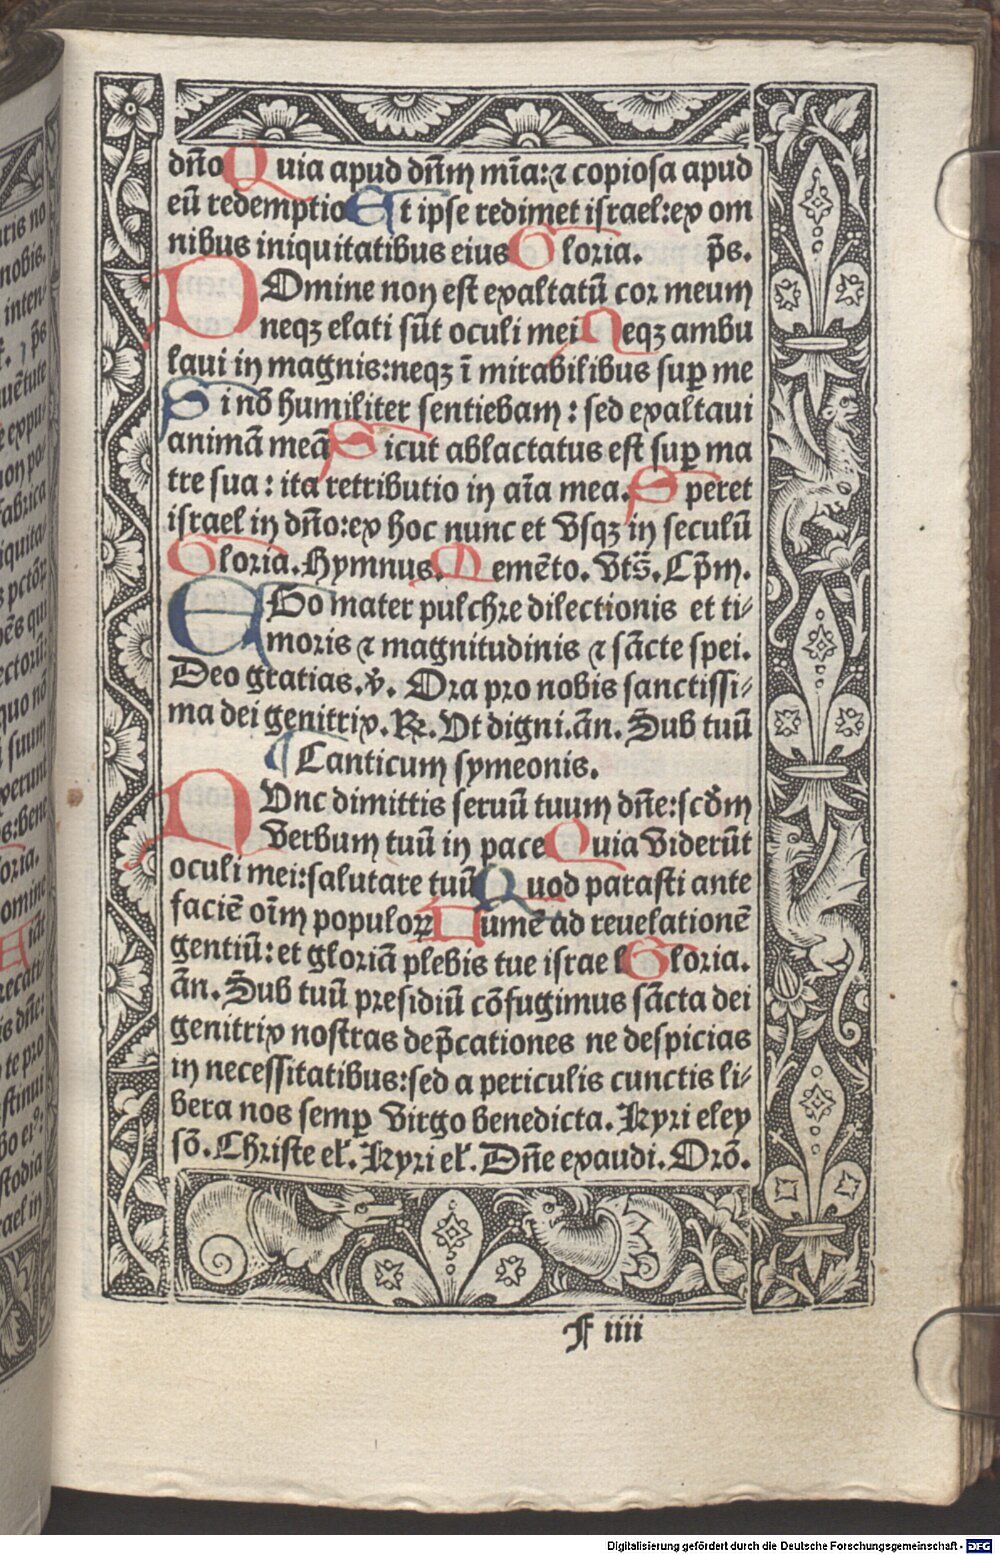 dño Quia apud dñm mĩa:⁊ copiosa apud
eũ redemptio Et ipse redimet israel:ex om
nibus iniquitatibus eius Gloria. p̃s.
DOmine non est exaltatũ cor meum
neqꝫ elati sũt oculi mei Neqꝫ ambu
laui in magnis:neqꝫ ĩ mirabilibus suꝑ me
Si nõ humiliter sentiebam: sed exaltaui
animã meã Sicut ablactatus est suꝑ ma
tre sua: ita retributio in aĩa mea. Speret
israel in dño:ex hoc nunc et vsqꝫ in seculũ
Gloria. Hymnus. Memẽto. Vts̃. Cp̃m.
EGo mater pulchre dilectionis et ti⸗
moris ⁊ magnitudinis ⁊ sãcte spei.
Deo gratias. ℣. Ora pro nobis sanctissi⸗
ma dei genitrix. ℟. Vt digni. ãn. Sub tuũ
¶ Canticum symeonis.
NVnc dimittis seruũ tuum dñe:scd̃m
verbum tuũ in pace Quia viderũt
oculi mei:salutare tuũ Quod parasti ante
faciẽ oĩm populoꝝ Lumẽ ad reuelationẽ
gentiũ: et gloriã plebis tue israel Gloria.
ãn. Sub tuũ presidiũ cõfugimus sãcta dei
genitrix nostras dep̃cationes ne despicias
in necessitatibus:sed a periculis cunctis li⸗
bera nos semꝑ virgo benedicta. Kyri eley
sõ. Christe eł. Kyri eł. Dñe exaudi. Orõ.
F iiii
uris no
nobis.
inten⸗
p̃s
uẽtute
e expu
non po
fabrica
iquita⸗
pctõꝝ
ectorũ:
quo nõ
suum
xerunt
s:bene
oria.
omine
Fiãt
recati
is dñe:
te pro
stinui
stodia
rael in
Digitalisierung gefördert durch die Deutsche Forschungsgemeinschaft - DFG